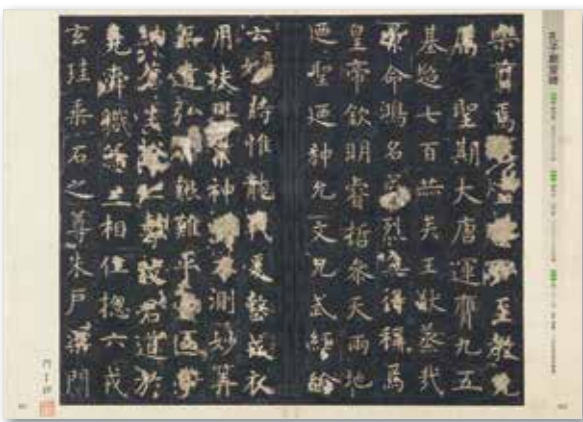 孔子廟堂碑
樂資焉至教允
屬聖期大唐運膺九五
基超七百赫矣王猷蒸哉
景命鴻名盛烈無得稱焉
皇帝欽明睿哲參天兩地
迺聖迺神允文允武經綸
云始時惟龍戰爰整戎衣
用扶興業神謀不測妙算
無遺弘濟艱難平壹區宇
納蒼生於仁壽致君道於
堯舜職兼三相位總六戎
玄珪乘石之尊朱戶渠門